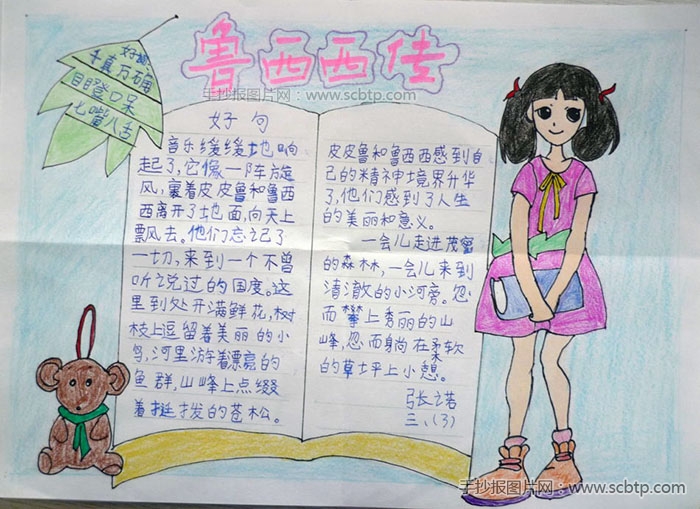 鲁西西传
手抄报图片网:www.scbtp.com
好词
千真万确
目瞪口呆
七嘴八舌
好句
音乐缓缓地响
起了,它像一阵旋
风,裹着皮皮鲁和鲁西
西离开了地面,向天上
飘风去。他们忘记了
一切,来到一个不曾
听说过的国度。这
里到处开满鲜花,树
枝上逗留着美丽的小
鸟,河里游着漂亮的
鱼群,山峰上点缀
着挺拔的苍松。
皮皮鲁和鲁西西感到自
己的精神境界升华
了,他们感到了人生
的美丽和意义。
一会儿走进茂密
的森林,一会儿来到
清澈的小河旁。忽
而攀上秀丽的山
峰,忽而躺在柔软
的草坪上小憩。
张之诺
三、(3)
手抄报图片网:www.scbtp.com